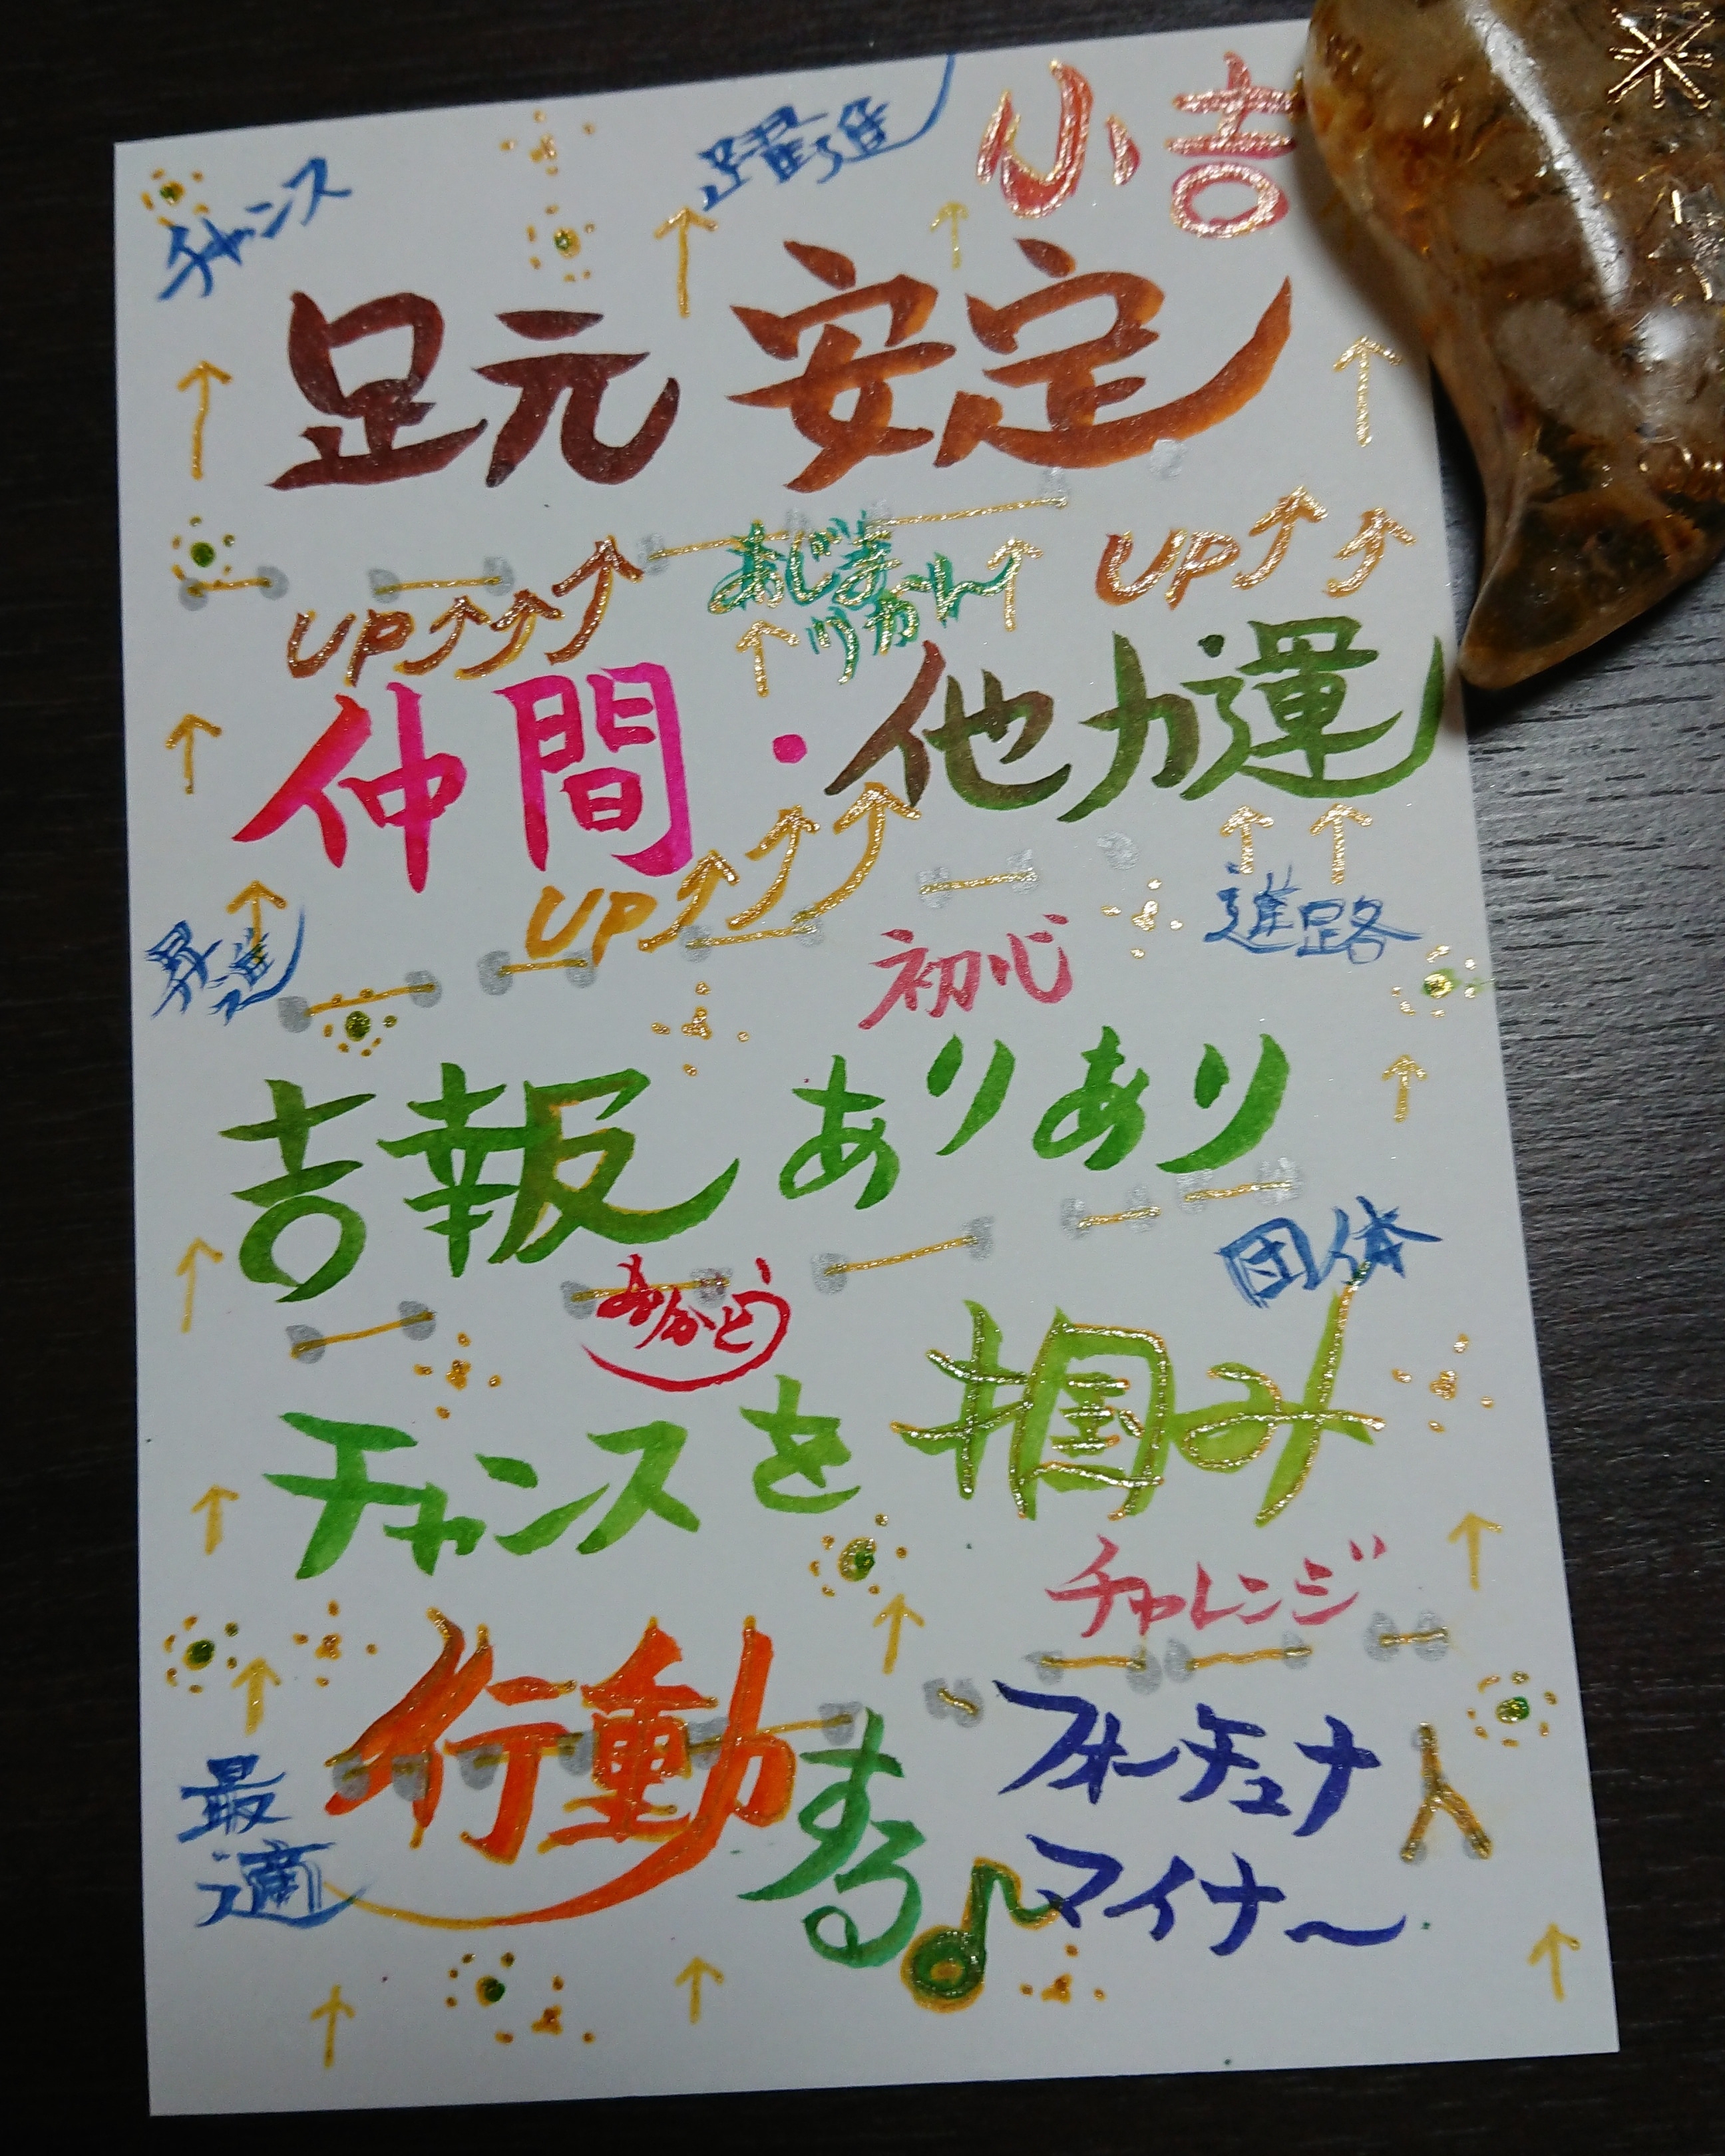 小吉
躍進
チャンス
足元 安定
UP↑↑↑
あじまりかん
UP↑↑
仲間・他力運
UP↑↑↑
昇進
進路
初心
吉報 ありあり
団体
ありがとう
チャンスを掴み
チャレンジ
行動する♪
フォーチュナ
マイナ〜
最適